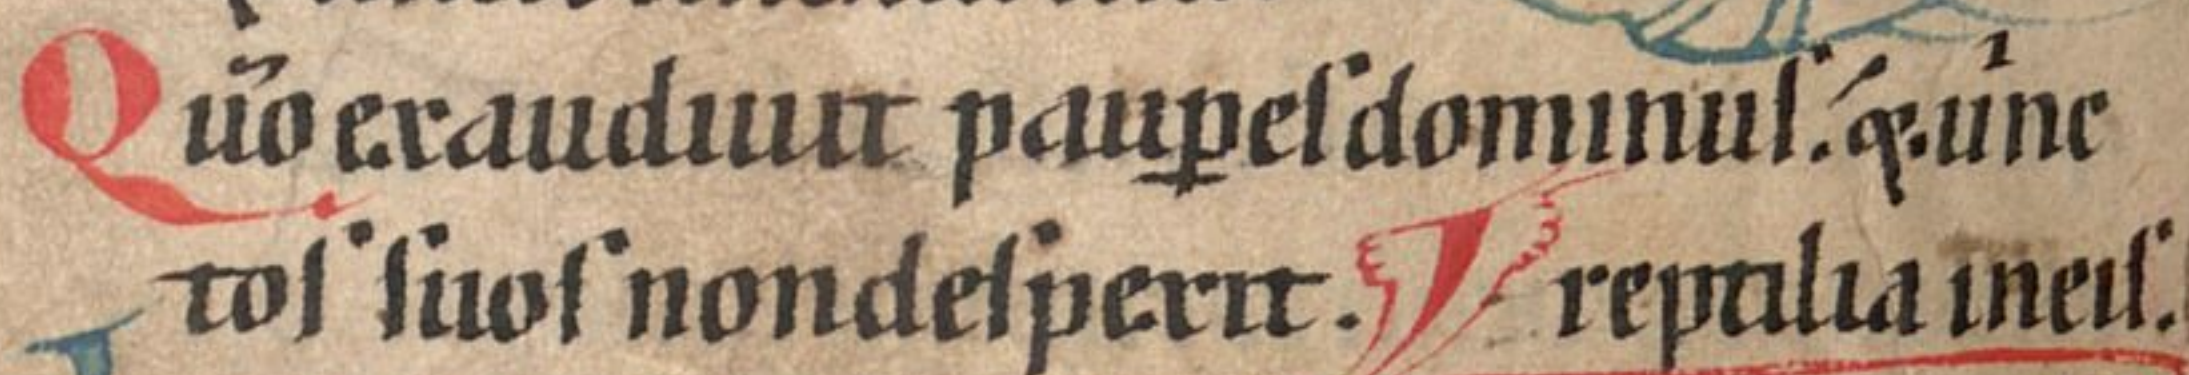 Qũo exaudiuit paup̱eſ dominuſ. ⁊ uinc
toſ ſuoſ non deſpexit. reptilia in eiſ.